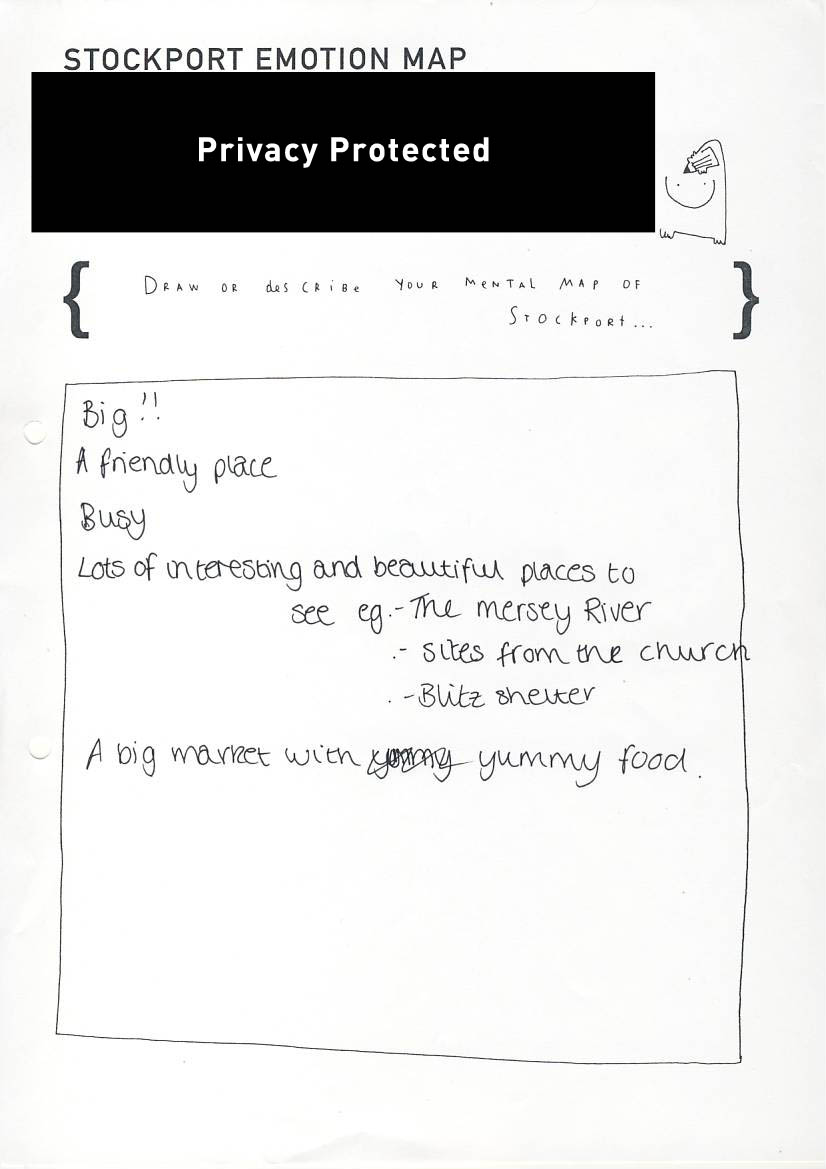 STOCKPORT EMOTION MAP
Privacy Protected
{ DRAW OR desCRiBe YOUR MeNTAL MAP OF }
STOCkPORt...
Big !!
A friendly place
Busy
Lots of interesting and beautiful places to
see eg.- The mersey River
.- sites from the church
. - Blitz shelter
A big market with yummy food.